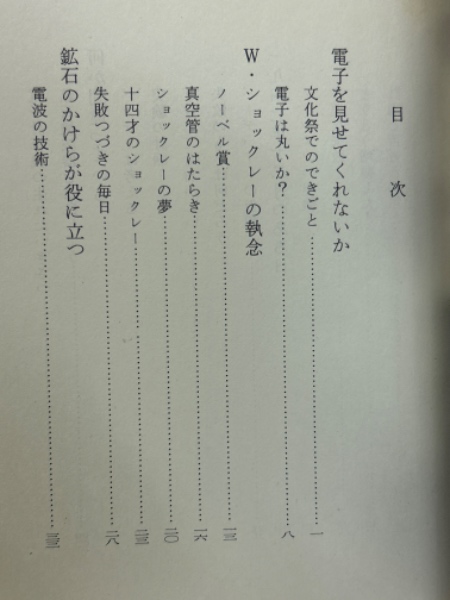 目次
電子を見せてくれないか
文化祭でのできごと……………一
電子は丸いか?……………八
W・ショックレーの執念
ノーベル賞……………一三
真空管のはたらき……………一六
ショックレーの夢……………二〇
十四才のショックレー……………二三
失敗つづきの毎日……………二八
鉱石のかけらが役に立つ
電波の技術……………三三